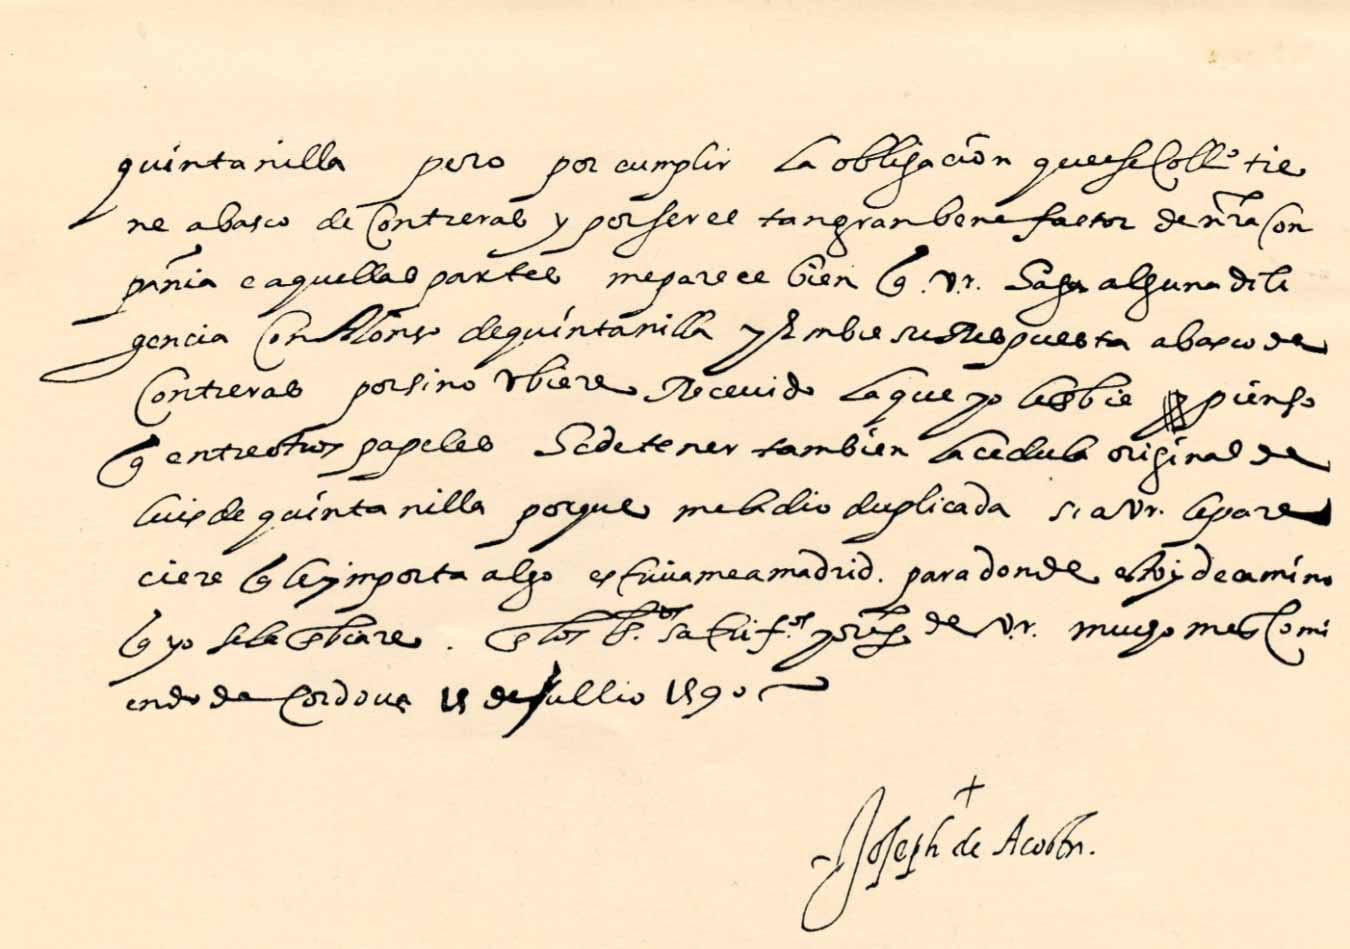 quintanilla pero por cumplir la obligación que ese Coll.º tie
ne a basco de Contreras y por ser el tan gran benefactor de nr̃a Con
pañia e aquellas partes me parece bien q̃. v.r. haga alguna dili
gencia Con Alonso de quintanilla y embie su Respuesta a basco de
Contreras por si no ubiere Recevido la que yo le ẽbie y pienso
q̃ entre otros papeles he de tener tambien la cedula original de
luis de quintanilla porque me la dio duplicada si a Vr. le pare
ciere q̃ le importa algo escrivame a madrid. para donde estoy de camino
q̃ yo se la ẽbiare. En los sᵗᵒˢ sacrifᵒˢ y orões de v.r. mucho me Comi
endo de Cordova 15 de Jullio 1590
+
Joseph de Acosta.